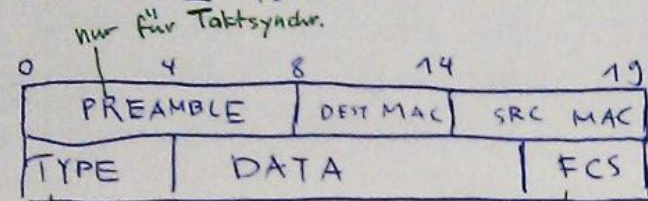 nur für Taktsynchr.
0 4 8 14 19
PREAMBLE DEST MAC SRC MAC
TYPE DATA FCS